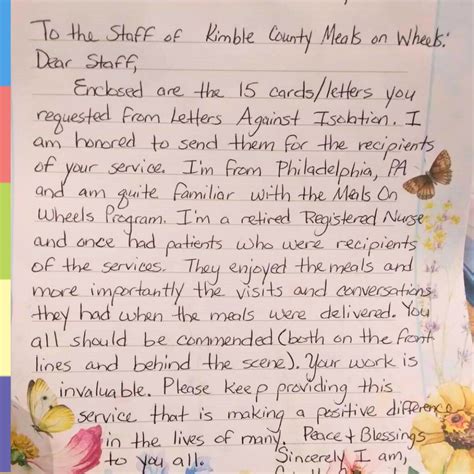 To the Staff of Kimble County Meals on Wheels:
Dear Staff,
Enclosed are the 15 cards/letters you
requested from Letters Against Isolation. I
am honored to send them for the recipients
of your service. I'm from Philadelphia, PA
and am quite familiar with the Meals On
Wheels Program. I'm a retired Registered Nurse
and once had patients who were recipients
of the services. They enjoyed the meals and
more importantly the visits and conversations
they had when the meals were delivered. You
all should be commended (both on the front
lines and behind the scene). Your work is
invaluable. Please keep providing this
service that is making a positive difference
in the lives of many. Peace & Blessings
to you all. Sincerely I am,